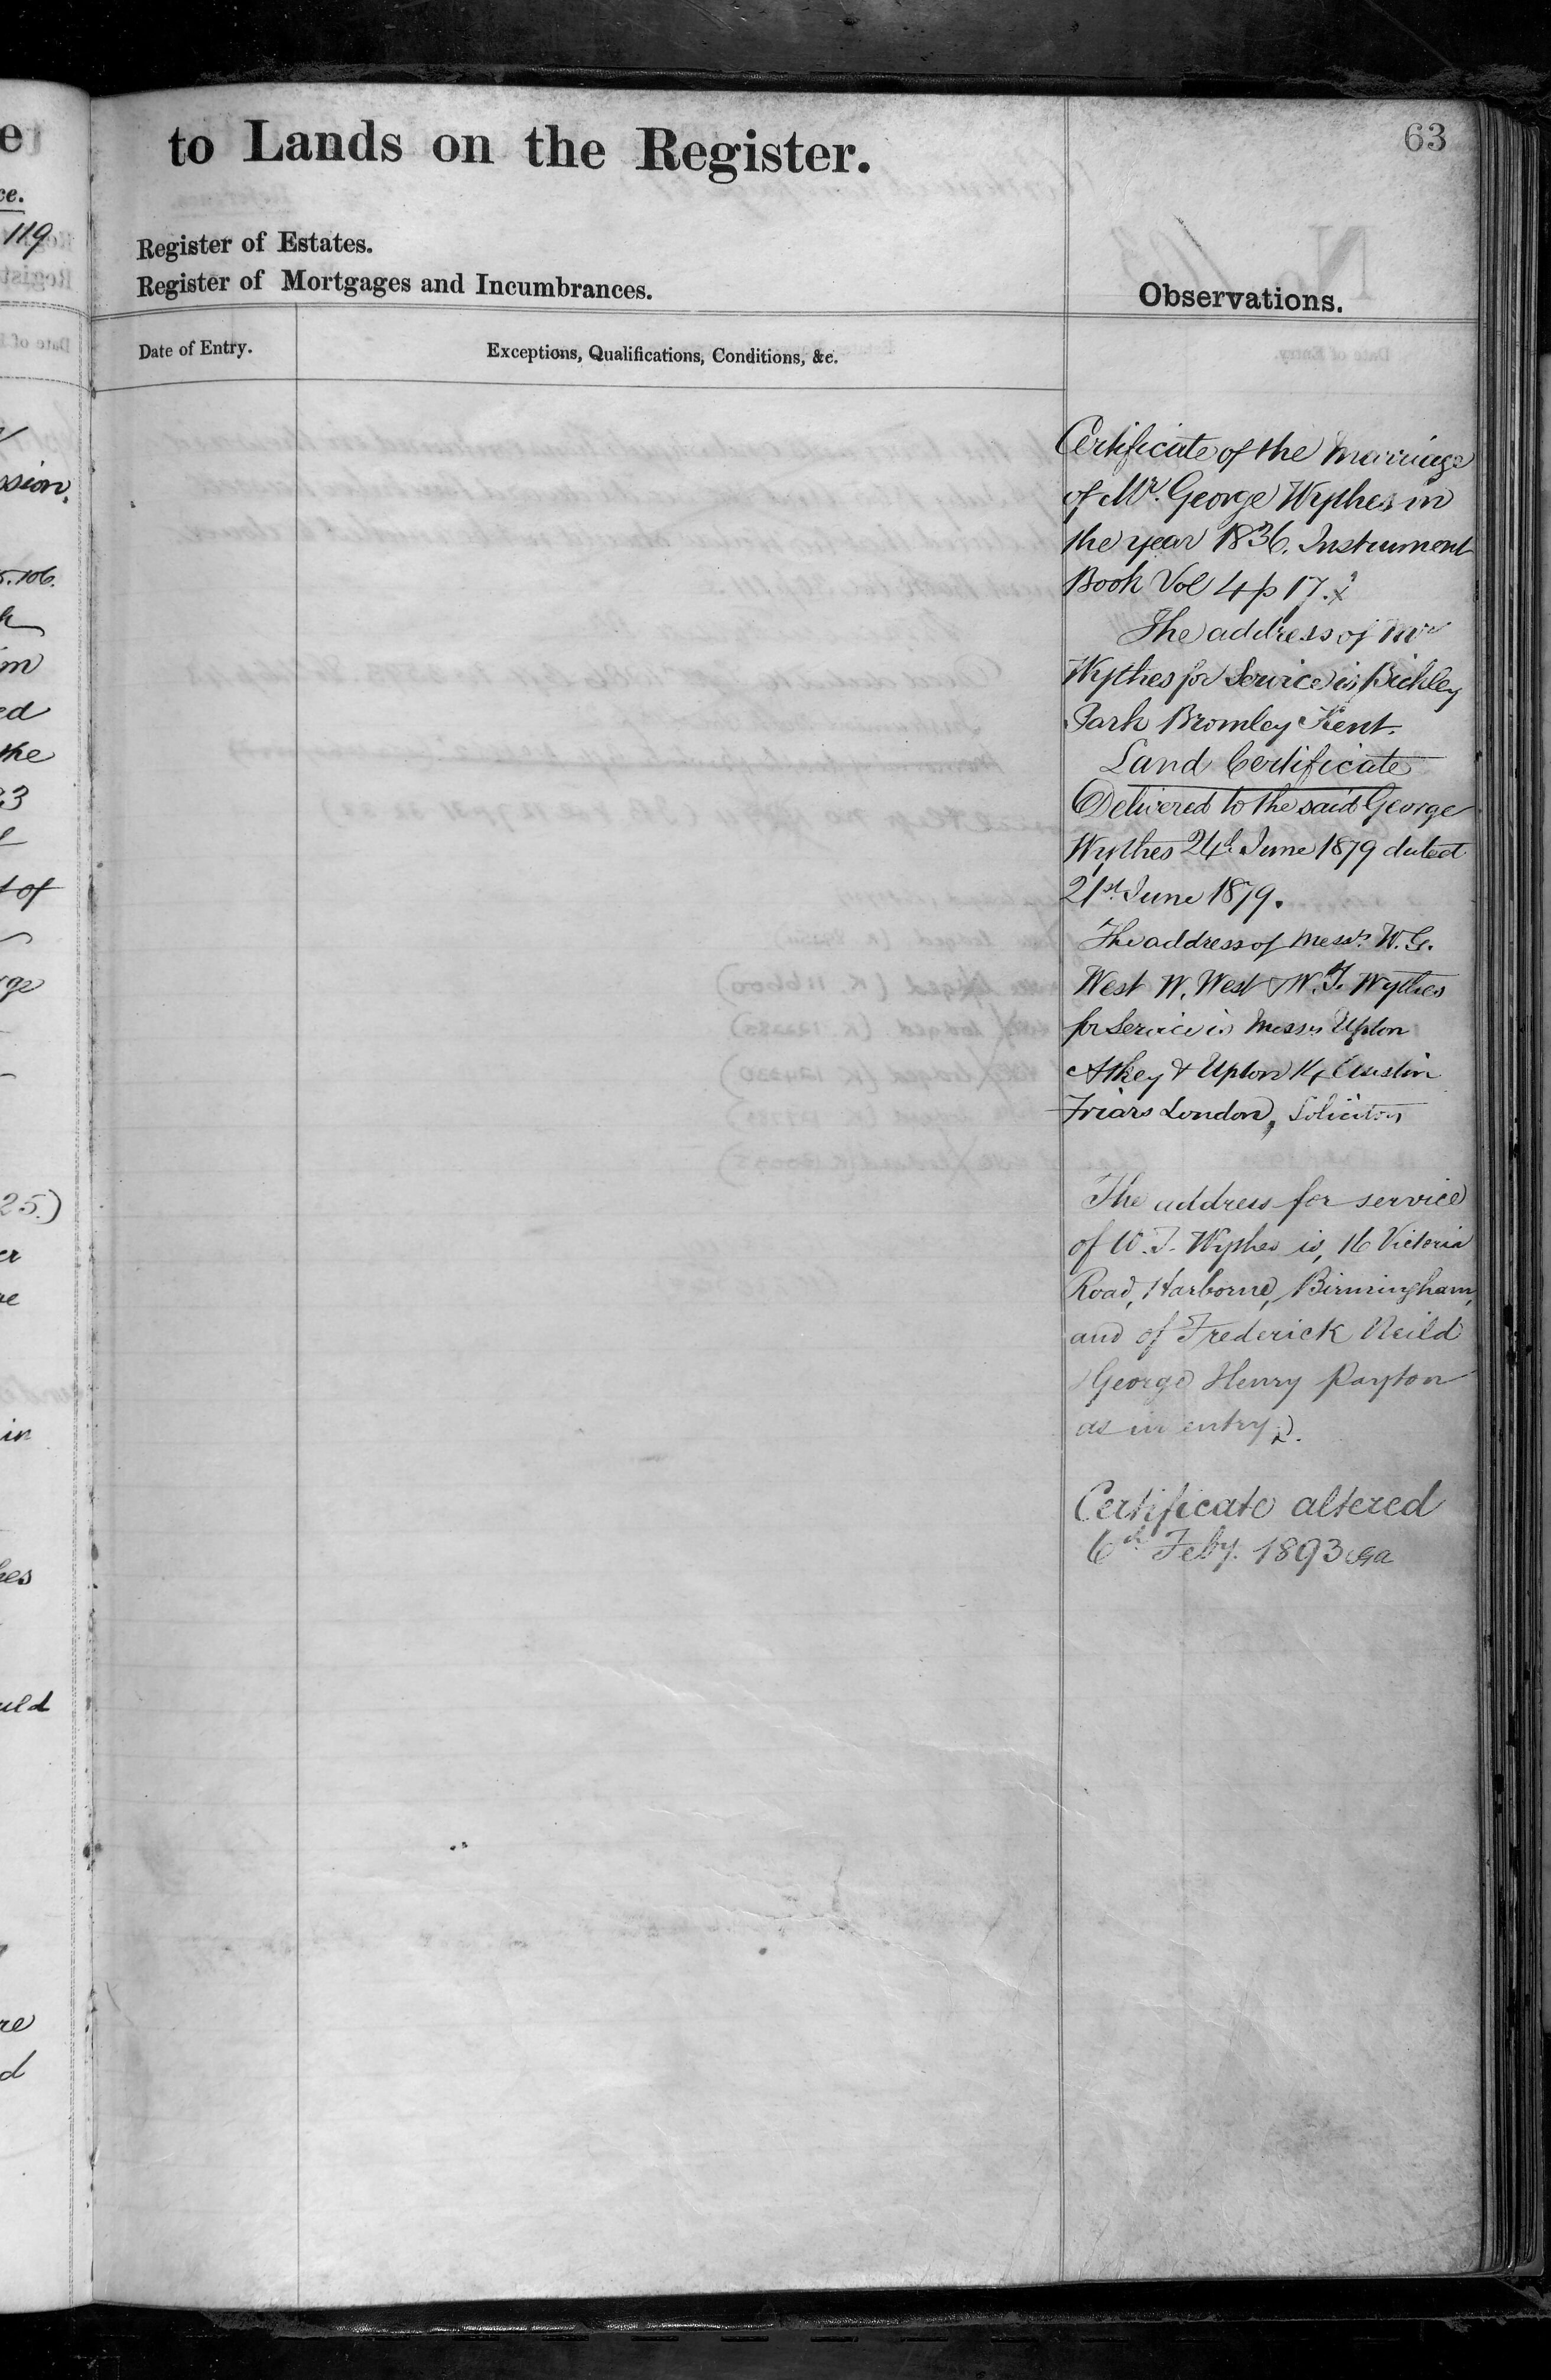 to Lands on the Register.
63
Register of Estates.
Register of Mortgages and Incumbrances.
Observations.
Date of Entry.
Exceptions, Qualifications, Conditions, &c.
Certificate of the Marriage
of Mr. George Wythes in
the year 1836. Instrument
Book Vol 4 p 17.
The address of Mr
Wythes for Service is Bickley
Park Bromley Kent.
Land Certificate
Delivered to the said George
Wythes 24th June 1879 dated
21st June 1879.
The address of Messrs W. G.
West W. West & W. T. Wythes
for Service is Messrs Upton
Atkey & Upton 14 Austin
Friars London, Solicitors
The address for service
of W. T. Wythes is, 16 Victoria
Road, Harborne, Birmingham,
and of Frederick Neild
George Henry Payton
as in entry 2.
Certificate altered
6th Feby. 1893
119
ssion.
5.106.
the
t of
25.)
in
uld